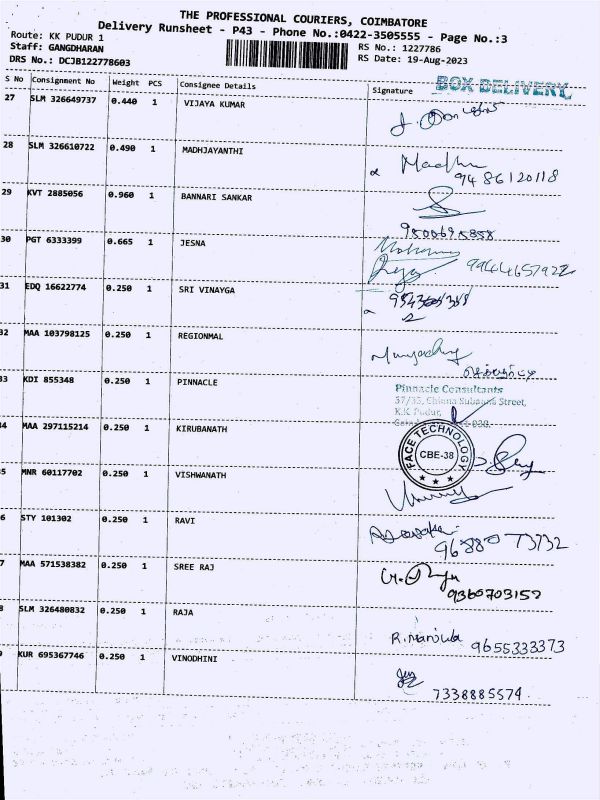 THE PROFESSIONAL COURIERS, COIMBATORE
Delivery Runsheet - P43 - Phone No.:0422-3505555 - Page No.:3
Route: KK PUDUR 1
Staff: GANGDHARAN
RS No.: 1227786
DRS No.: DCJB122778603
RS Date: 19-Aug-2023
S No Consignment No Weight PCS Consignee Details Signature
BOX DELIVERY
27 SLM 326649737 0.440 1 VIJAYA KUMAR
28 SLM 326610722 0.490 1 MADHJAYANTHI Madhu
9486120118
29 KVT 2885056 0.960 1 BANNARI SANKAR
9500695858
30 PGT 6333399 0.665 1 JESNA
9944465792
31 EDQ 16622774 0.250 1 SRI VINAYGA
32 MAA 103798125 0.250 1 REGIONMAL
33 KDI 855348 0.250 1 PINNACLE
Pinnacle Consultants
37/35, Chinna Subanna Street,
K.K. Pudur,
34 MAA 297115214 0.250 1 KIRUBANATH
FACE TECHNOLOGY
CBE-38
5 MNR 60117702 0.250 1 VISHWANATH
6 STY 101302 0.250 1 RAVI
96880 73732
7 MAA 571538382 0.250 1 SREE RAJ
9360703152
8 SLM 326480832 0.250 1 RAJA
R. Manjula 9655333373
9 KUR 695367746 0.250 1 VINODHINI
7338885574